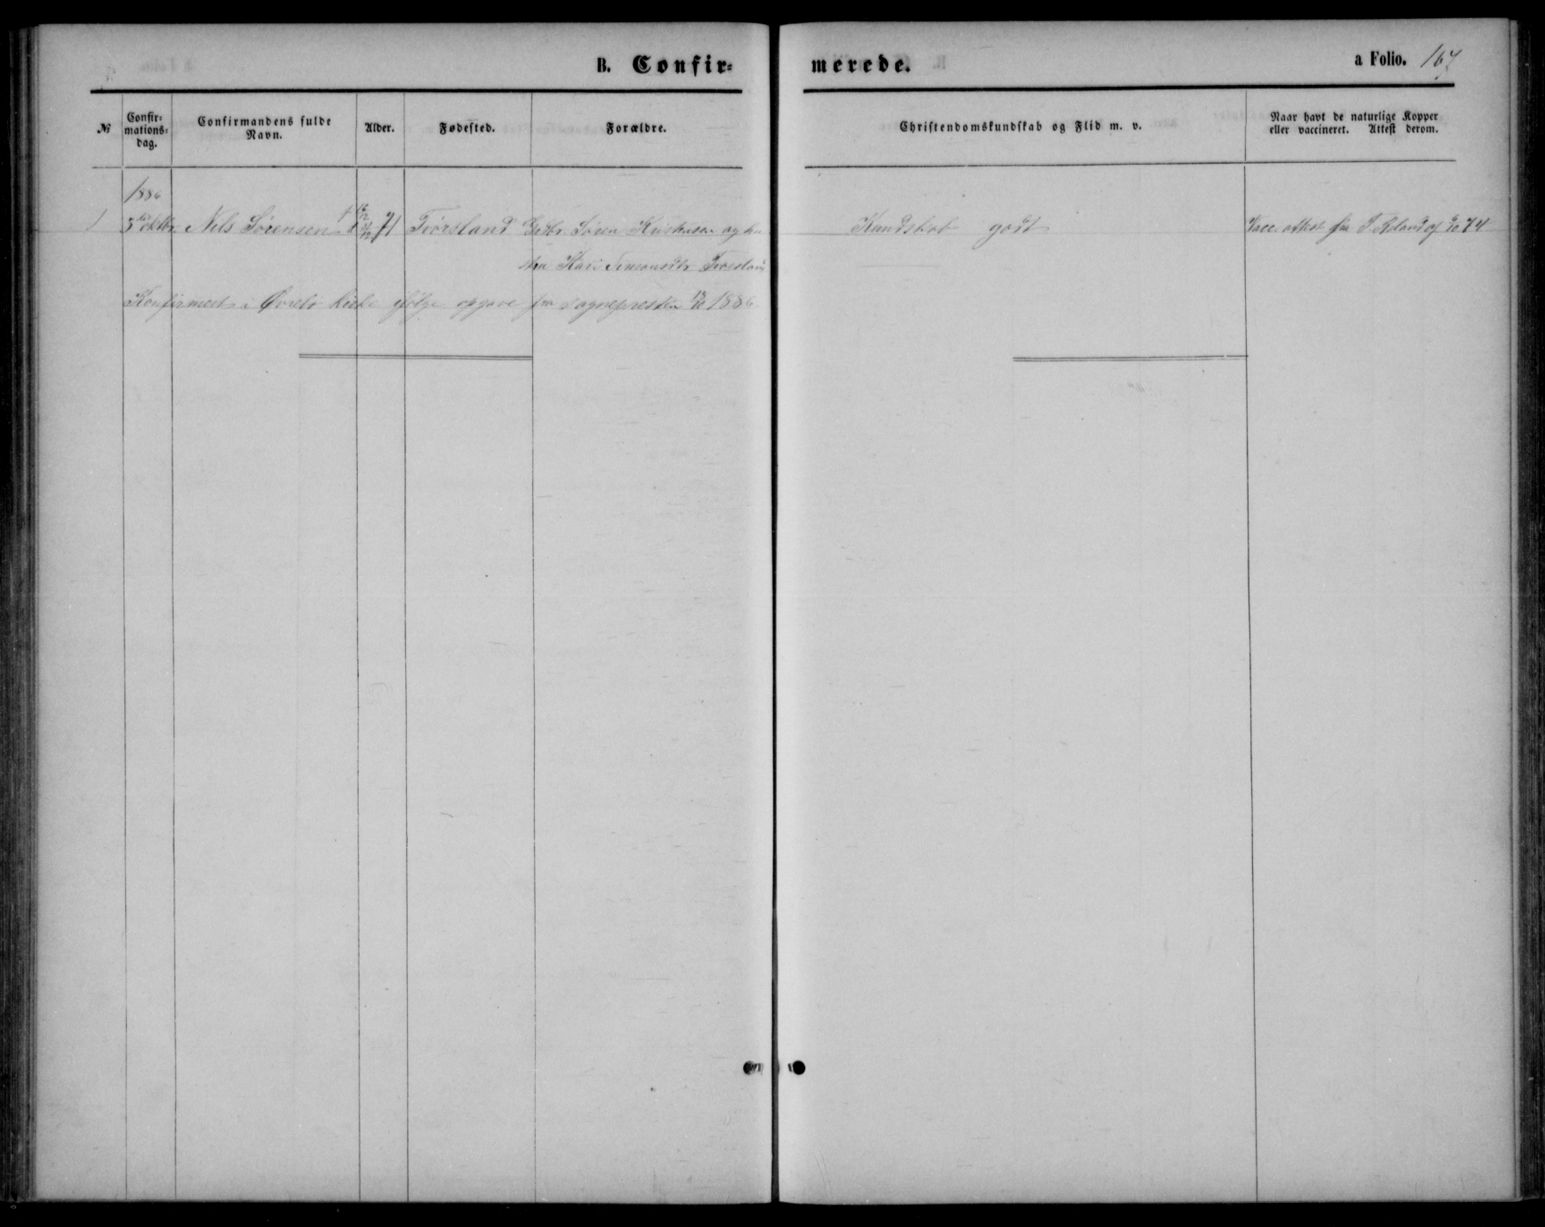 B. Confir=
merede.
a Folio. 167
№
Confir=
mations=
dag.
Confirmandens fulde
Navn.
Alder.
Fødested.
Forældre.
Christendomskundskab og Flid m. v.
Naar havt de naturlige Kopper
eller vaccineret. Attest derom.
1886
1 3 oktbr. Nels Sørensen 71 Trørsland Grbr. Søren Kristensen og hu
stru Kari Simonsdtr
Kundskab godt
Vacc. attest fra 74
Konfirmert i Øvrebø kirke ifølge opgave fra sognepresten 1886